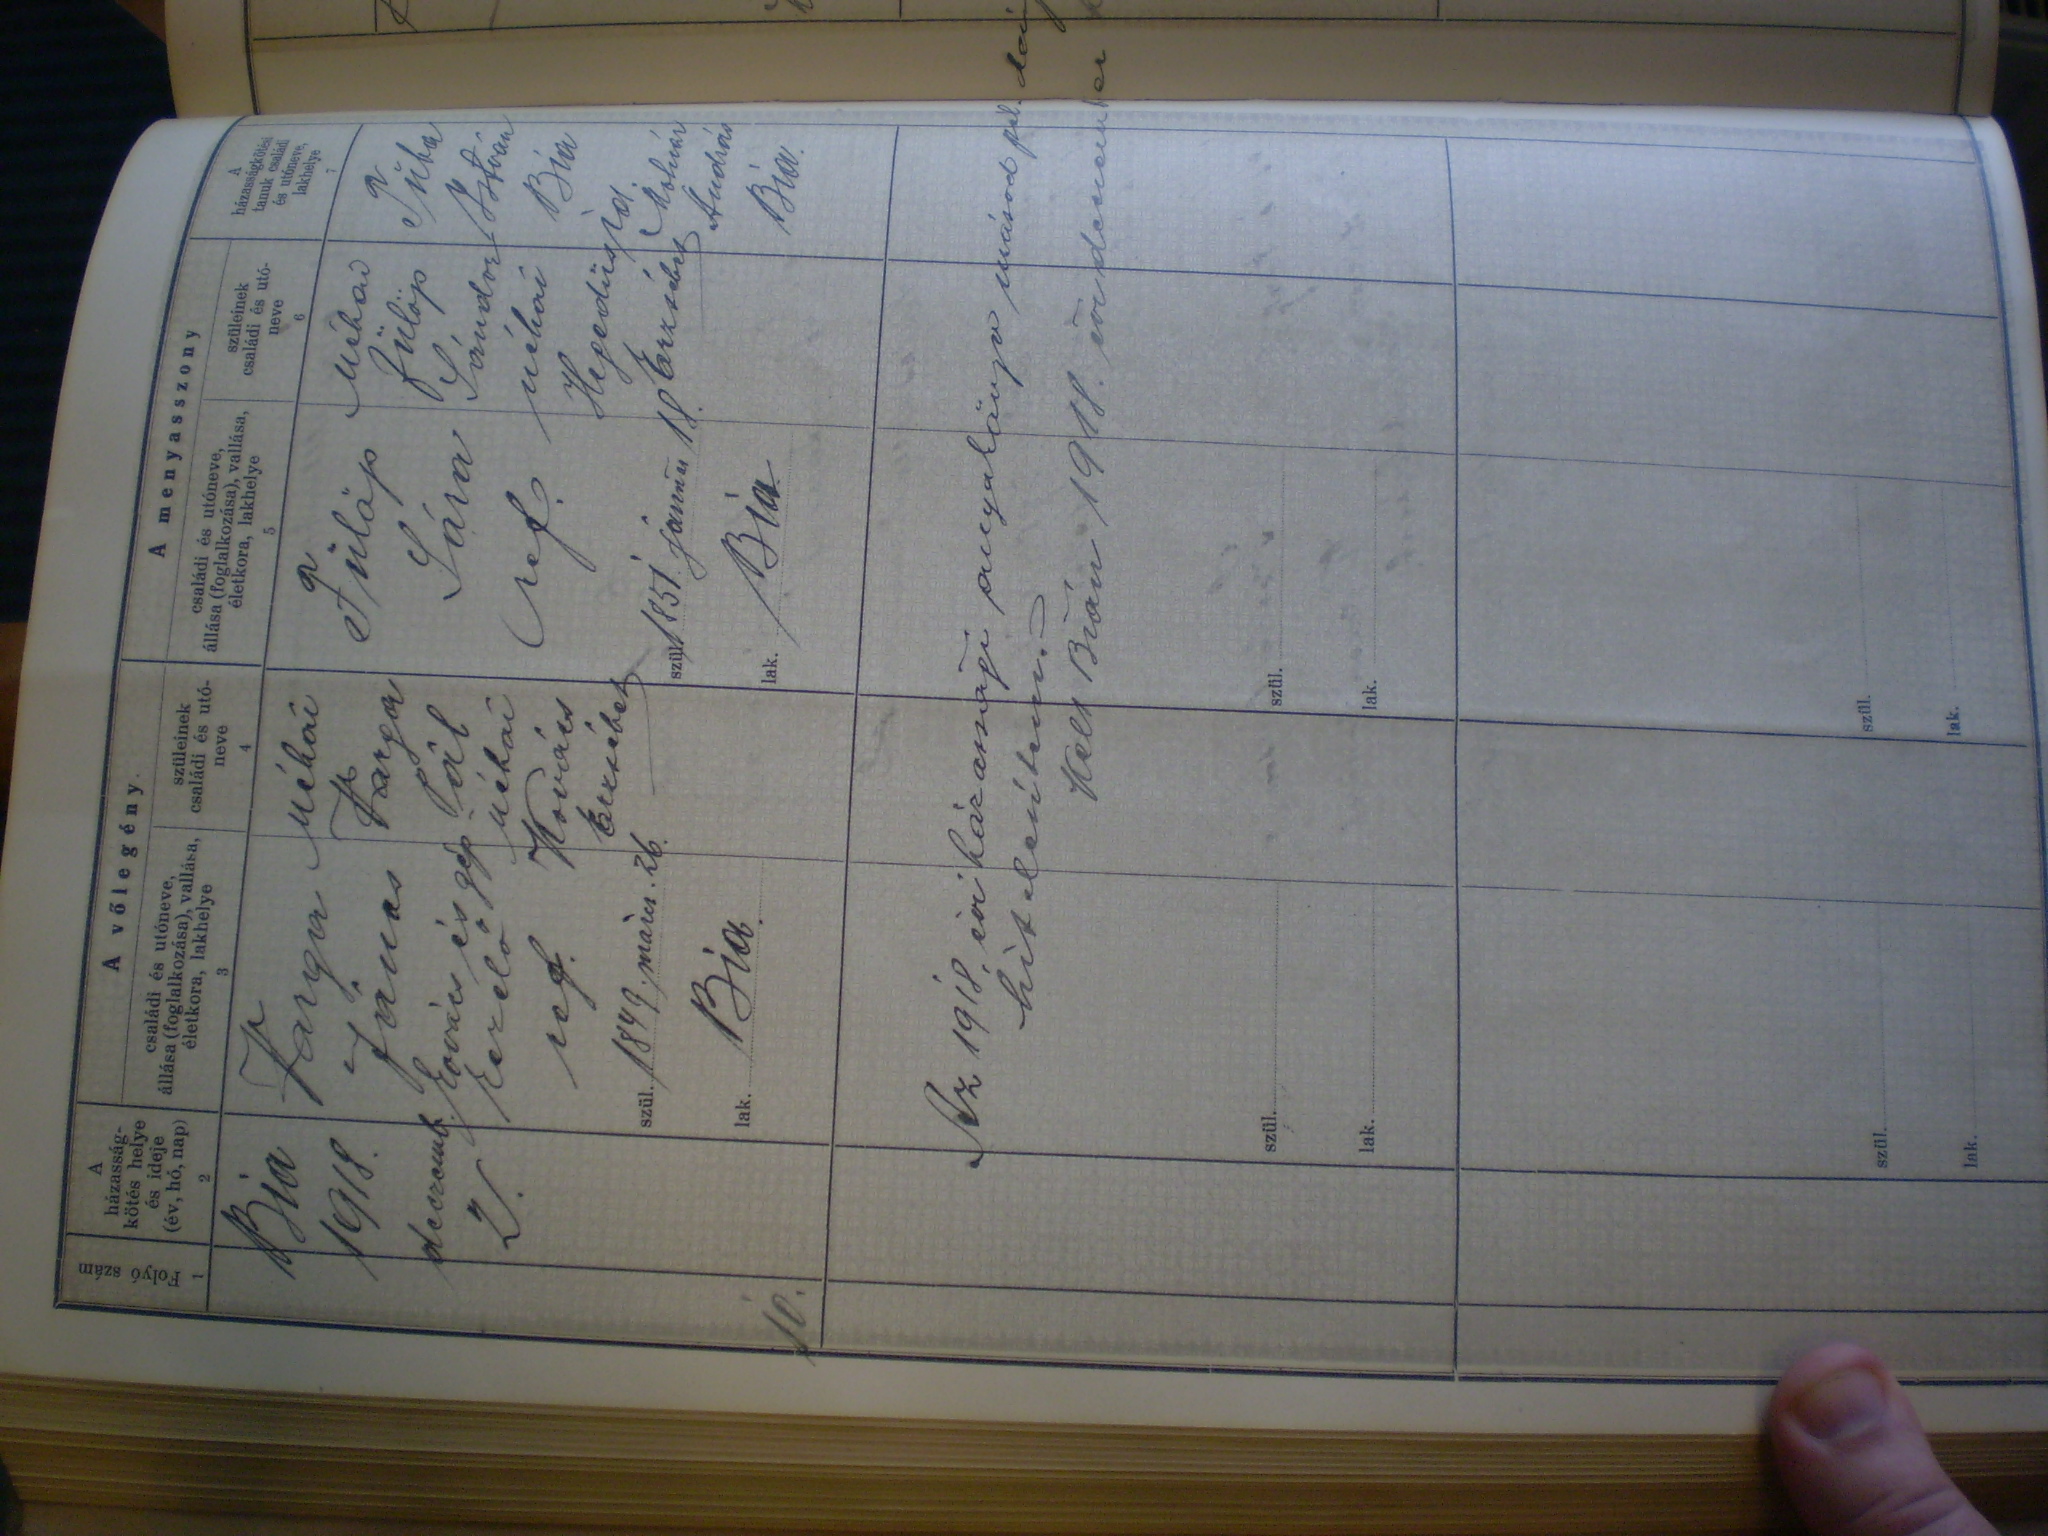 A vőlegény.
A menyasszony
Folyó szám
1
A
házasság-
kötés helye
és ideje
(év, hó, nap)
2
családi és utóneve,
állása (foglalkozása), vallása,
életkora, lakhelye
3
szüleinek
családi és utó-
neve
4
családi és utóneve,
állása (foglalkozása), vallása,
életkora, lakhelye
5
szüleinek
családi és utó-
neve
6
A
házasságkötési
tanuk családi
és utóneve,
lakhelye
7
10.
Bia
1918.
decemb.
21.
Varga
János
kovács és gép-
kezelő
ref.
szül. 1849. márcz. 26.
lak. Bia.
néhai
Varga
Pál
néhai
Kovács
Erzsébet
Fülöp
Sára
ref.
szül. 1851. január 18.
lak. Bia
néhai
Fülöp
Sándor
néhai
Hegedűs
Erzsébet
István
Bia
Molnár
András
Bia.
Az 1918. évi házassági anyakönyv másod pél
hitelesítem.
Kelt Bián 1918. évi december
szül.
lak.
szül.
lak.
szül.
lak.
szül.
lak.